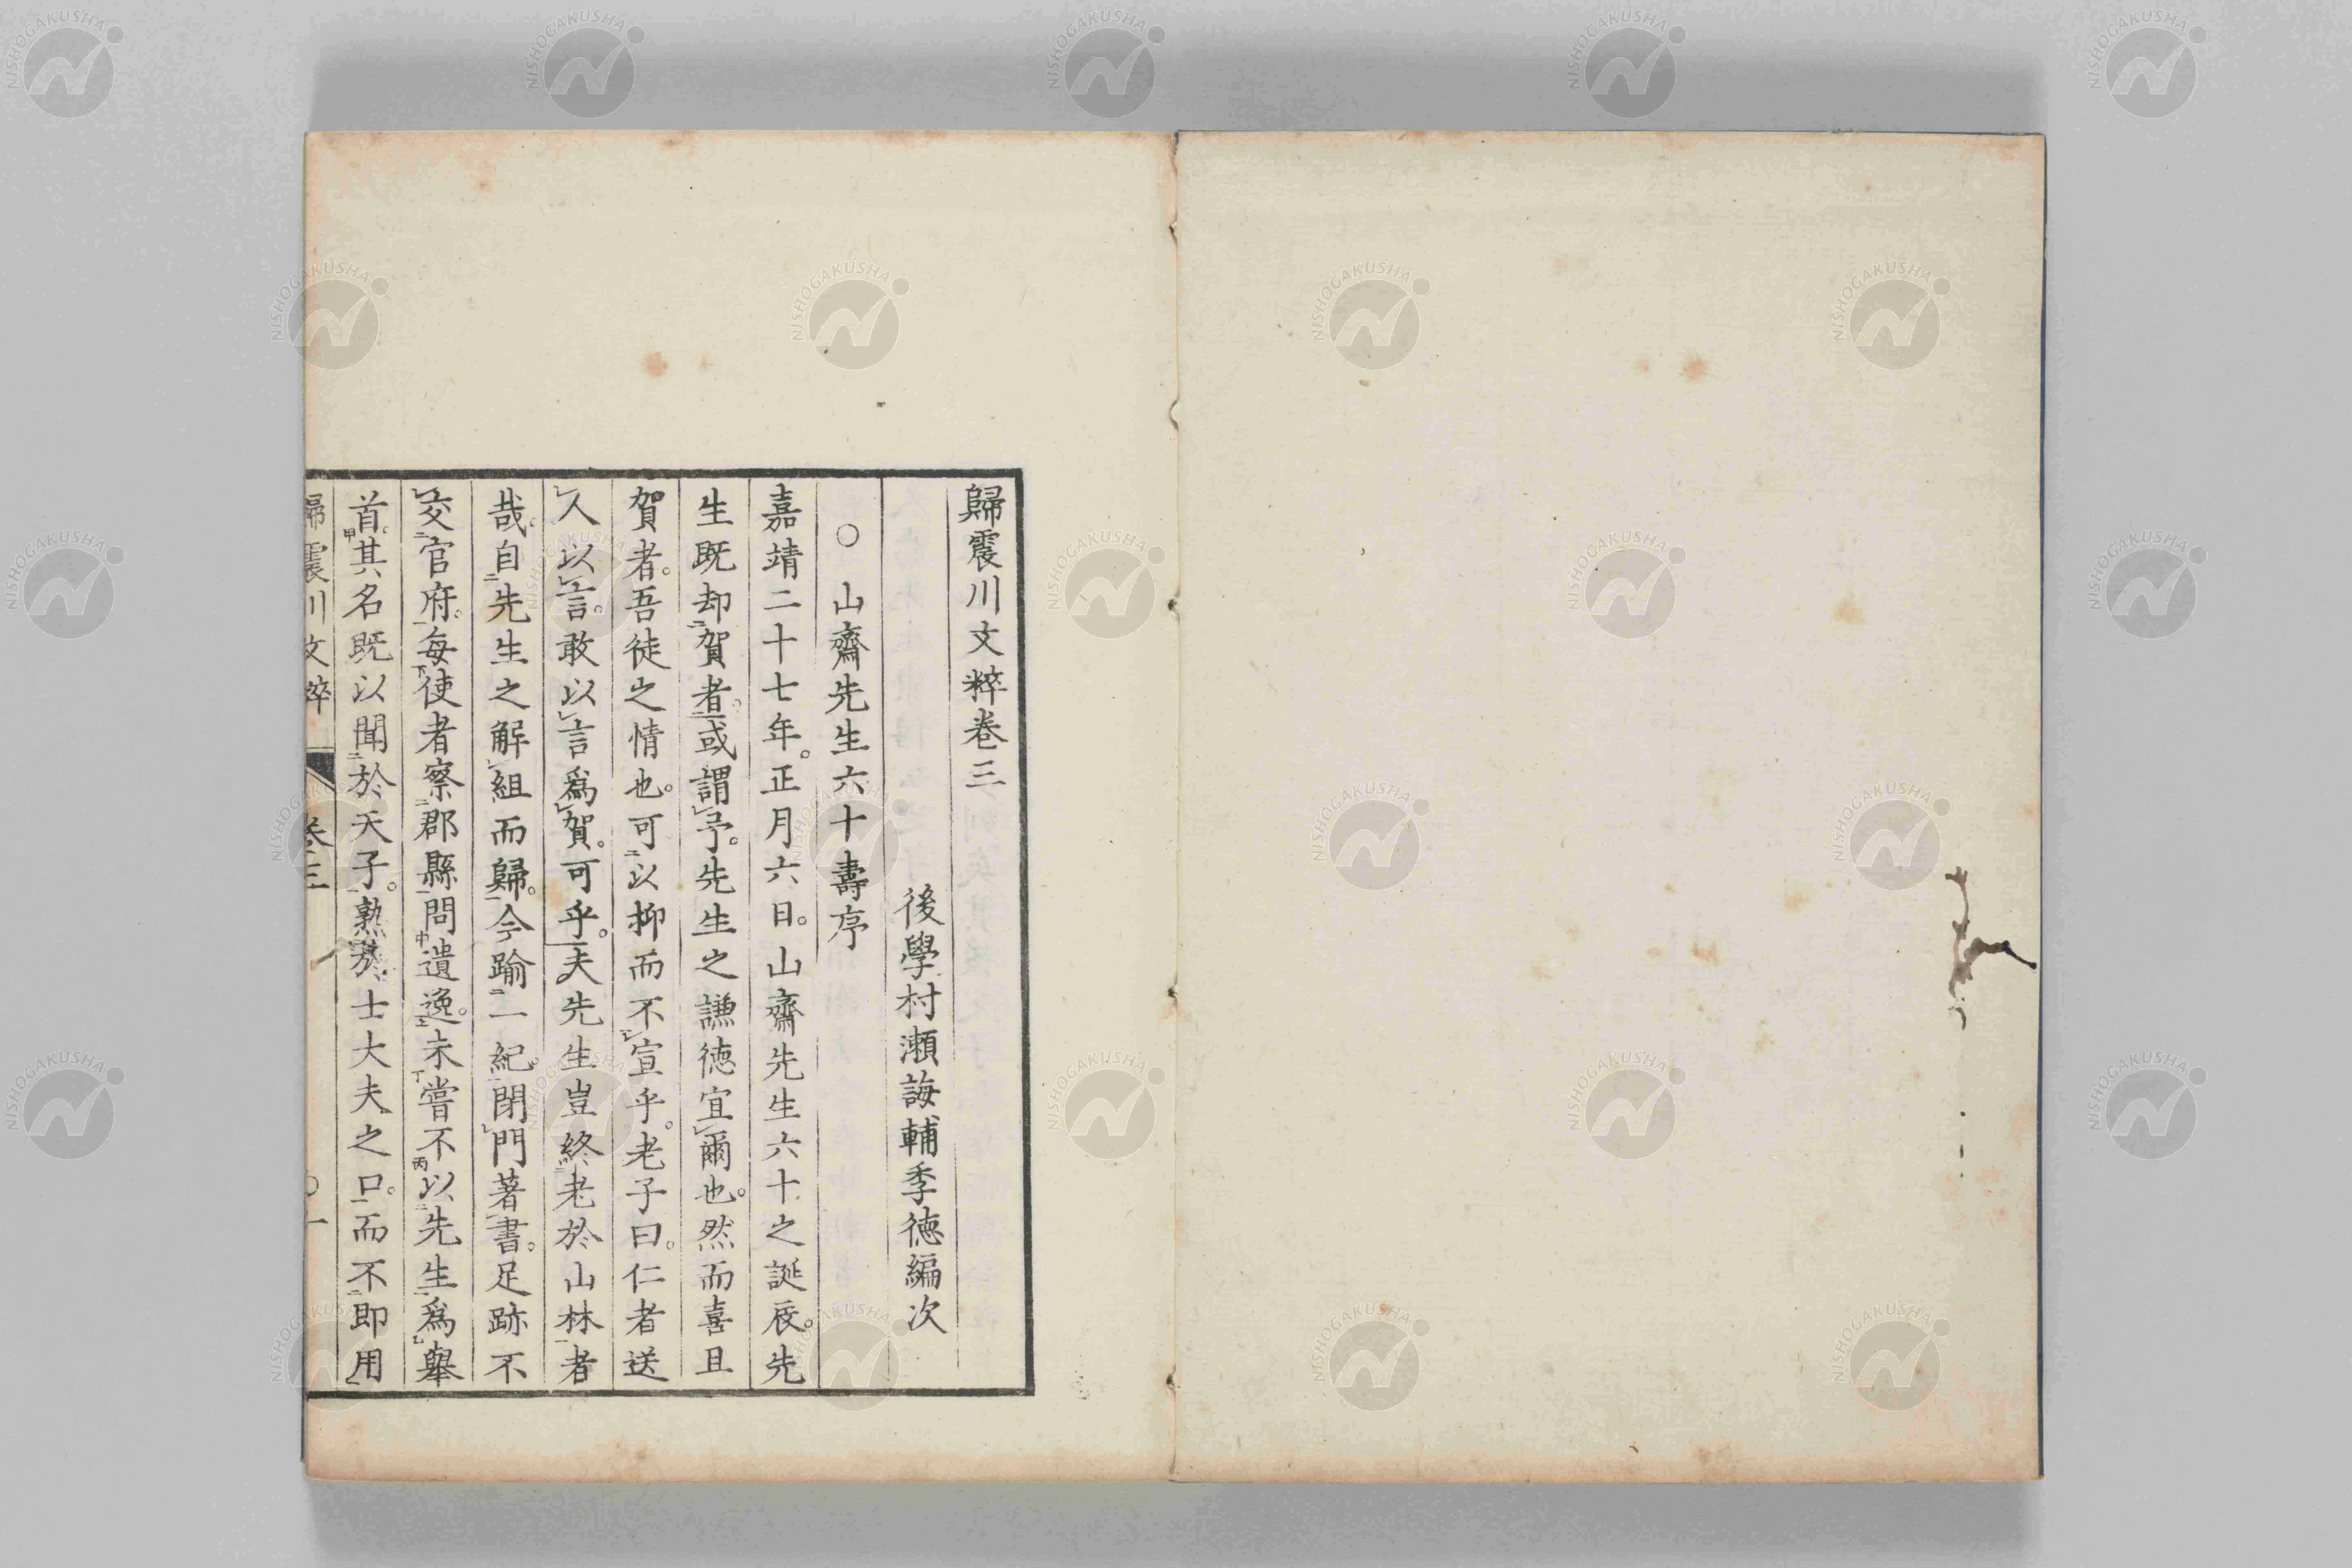 歸震川文粹卷三
後學村瀨誨輔季德編次
○山齋先生六十壽序
嘉靖二十七年。正月六日。山齋先生六十之誕辰。先
生既却二賀者。一或謂レ予。先生之謙德宜レ爾也。然而喜且
賀者。吾徒之情也。可二以抑而不一レ宣乎。老子曰。仁者送
レ人以レ言。敢以レ言爲レ賀。可乎。夫先生豈終二老於山林一者
哉。自二先生之解レ組而歸。一今踰二一紀。一閉レ門著レ書。足跡不
レ交二官府。一每下使者察二郡縣一問中遺逸上。未丁嘗不丙以二先生一爲乙舉
首甲。其名既以聞二於天子。一熟二於士大夫之口。一而不二即用一
歸震川文粹
卷三
○一
NISHOGAKUSHA